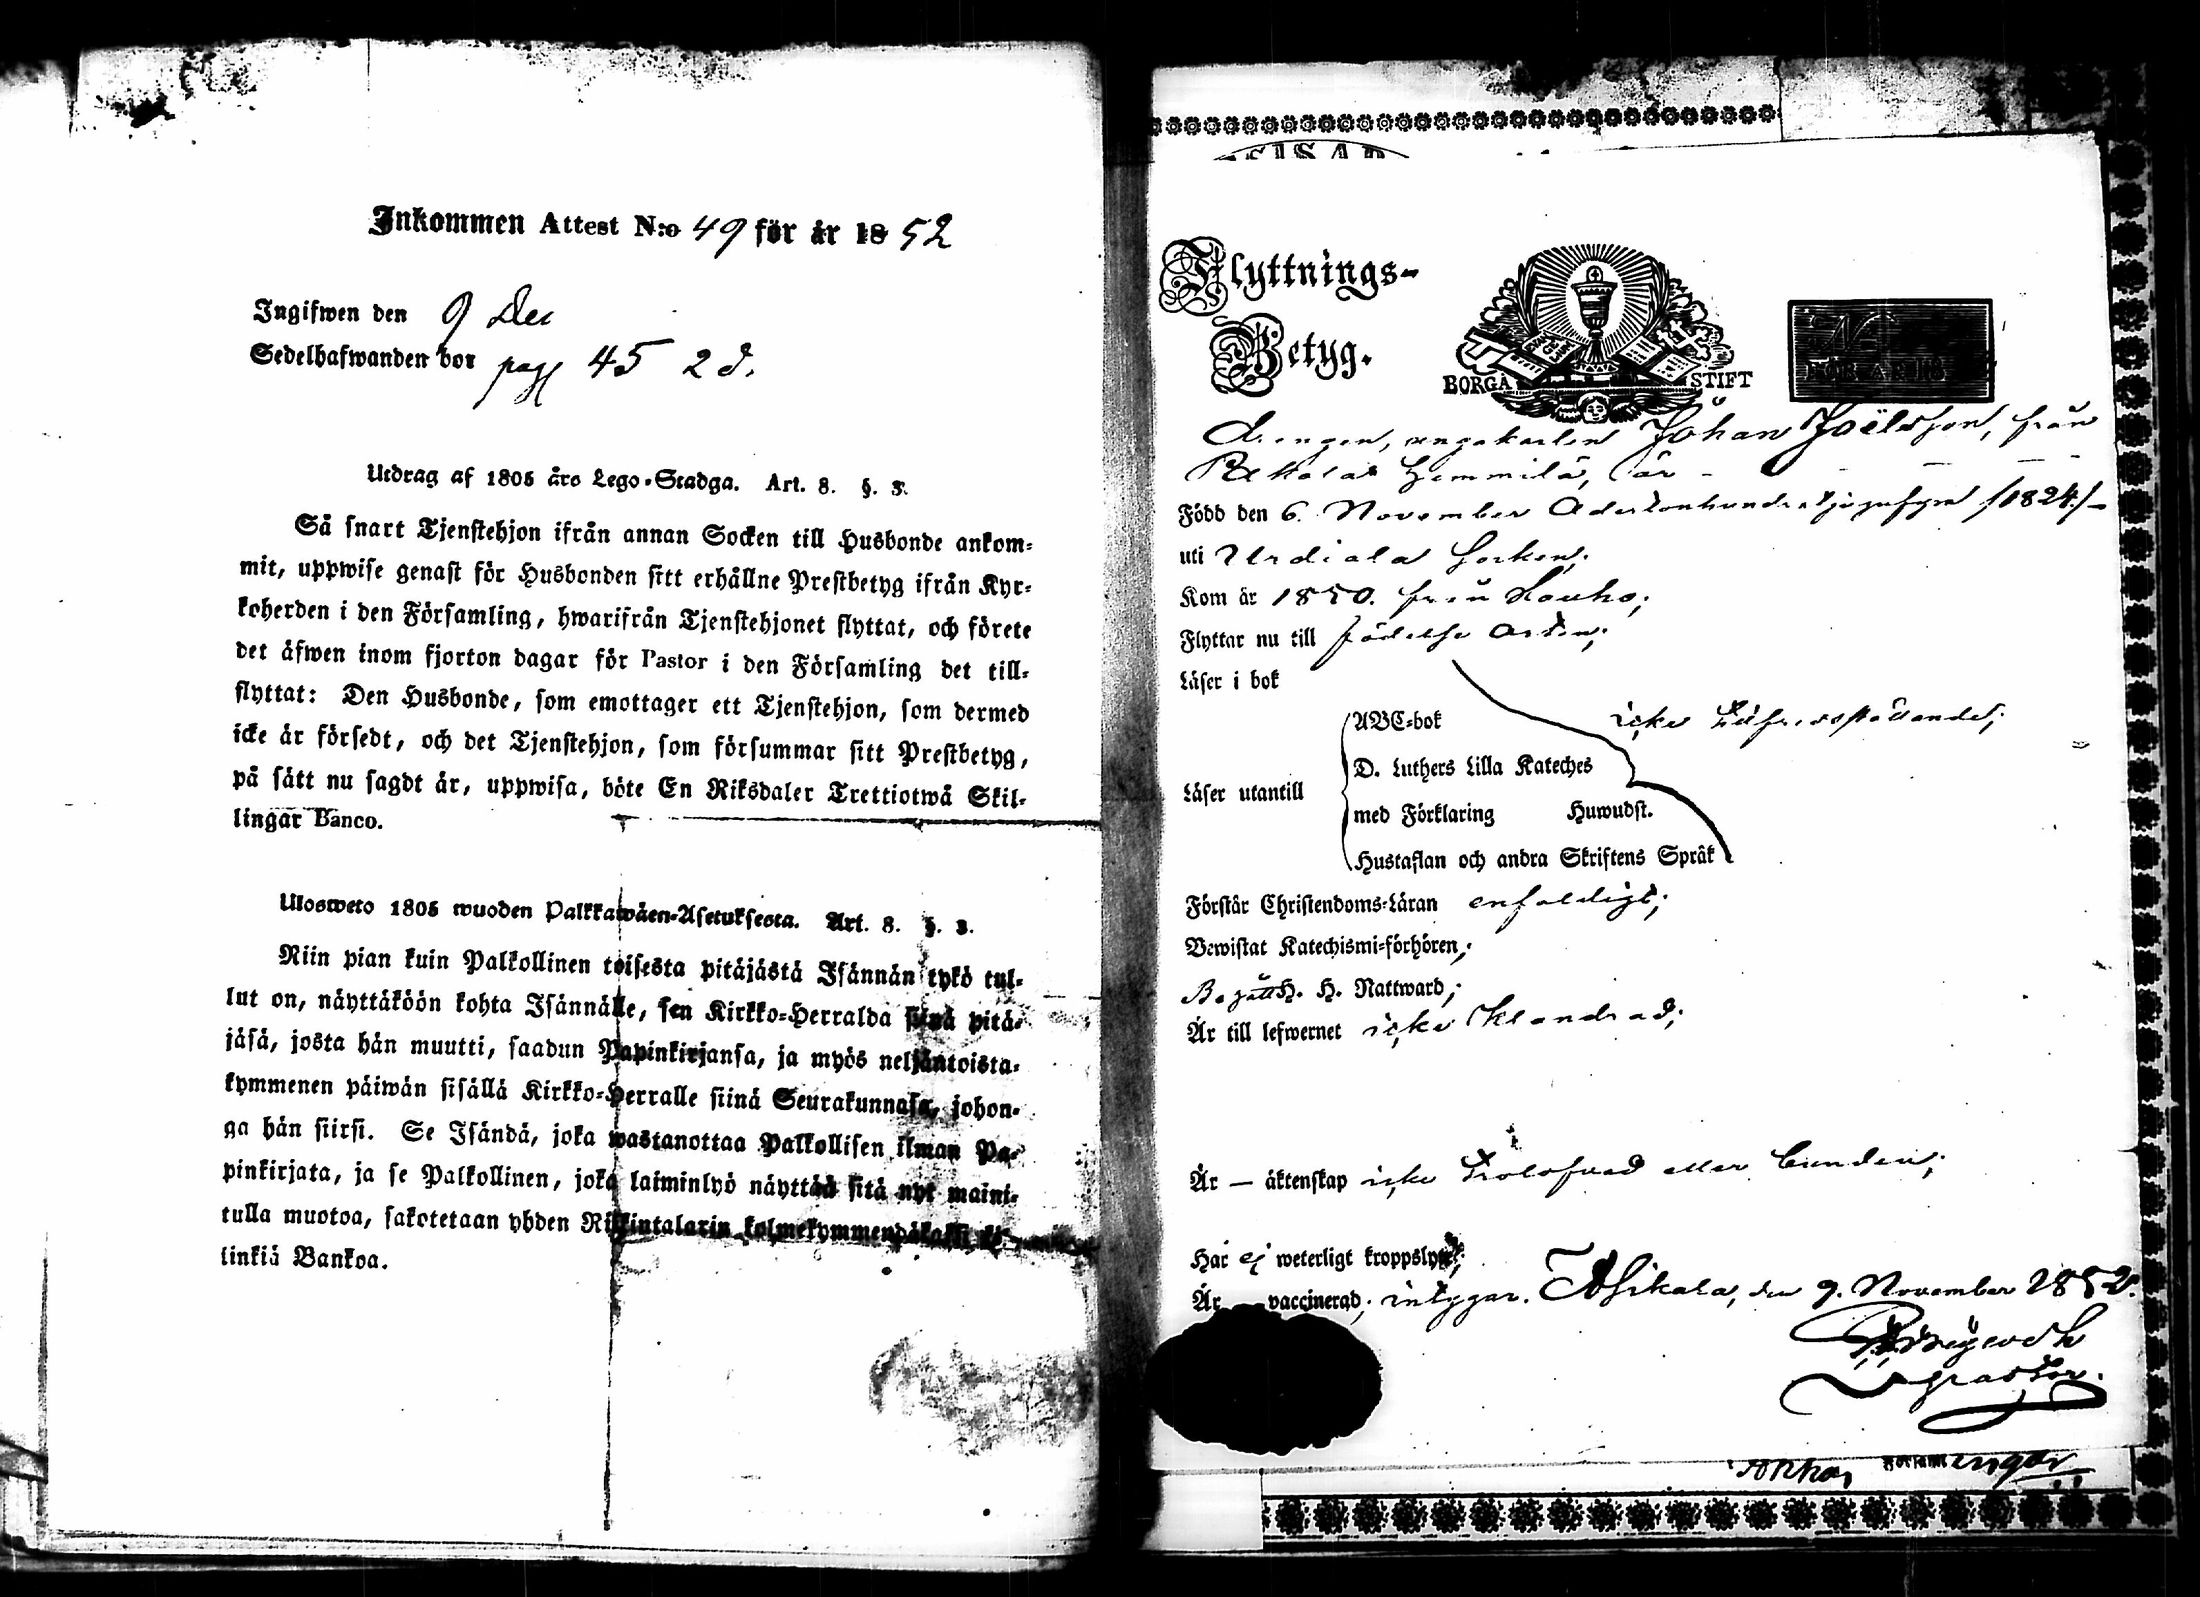 Inkommen Attest N:o 49 för år 1852
Ingifwen den 9 Dec
Sedelhafwanden bor pag 45 2 d.
Utdrag af 1805 års Lego-Stadga. Art. 8. §. 3.
Så snart Tjenstehjon ifrån annan Socken till Husbonde ankom-
mit, uppwise genast för Husbonden sitt erhållne Prestbetyg ifrån Kyr-
koherden i den Församling, hwarifrån Tjenstehjonet flyttat, och förete
det äfwen inom fjorton dagar för Pastor i den Församling det till-
flyttat: Den Husbonde, som emottager ett Tjenstehjon, som dermed
icke är försedt, och det Tjenstehjon, som försummar sitt Prestbetyg,
på sätt nu sagdt är, uppwisa, böte En Riksdaler Trettiotwå Skil-
lingar Banco.
Ulosweto 1805 wuoden Palkkawäen-Asetuksesta. Art. 8. §. 3.
Niin pian kuin Palkollinen toisesta pitäjästä Isännän tykö tul-
lut on, näyttäköön kohta Isännälle, sen Kirkko-Herralda siinä pitä-
jäsä, josta hän muutti, saadun Papinkirjansa, ja myös neljäntoista-
kymmenen päiwän sisällä Kirkko-Herralle siinä Seurakunnasa, johon-
ga hän siirsi. Se Isändä, joka wastanottaa Palkollisen ilman Pa-
pinkirjata, ja se Palkollinen, joka laiminlyö näyttää sitä nyt maini-
tulla muotoa, sakotetaan yhden Riikintalarin kolmekymmendäkaksi ki-
linkiä Bankoa.
Flyttnings-
Betyg.
BORGÅ STIFT
N
FÖR ÅR 18
Drengen, ungakarlen Johan Joëlsson, från
Hemmilä, är
Född den 6. November Adertonhundratjugufyra /1824./
uti Urdiala Socken;
Kom år 1850. från Hauho;
Flyttar nu till födelse orten;
Läser i bok
Läser utantill
ABC-bok icke tillfredsställande;
D. Luthers Lilla Kateches
med Förklaring Huwudst.
Hustaflan och andra Skriftens Språk
Förstår Christendoms-Läran enfaldigt;
Bewistat Katechismi-förhören;
Begått H. H. Nattward;
Är till lefwernet icke klandrad;
Är — äktenskap icke trolofvad eller bunden;
Har ej weterligt kroppslyte;
Är vaccinerad; intygar. Asikala, den 9. November 1852.
pastor.